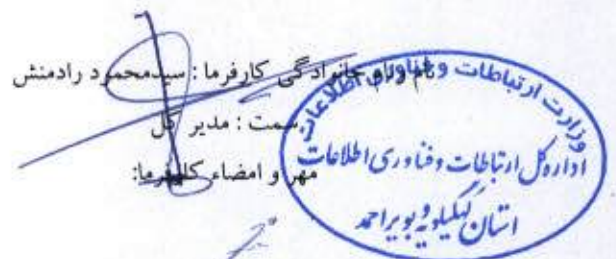 نام و نام خانوادگی کارفرما : سیدمحمرد رادمنش
سمت : مدیر کل
مهر و امضاء کارفرما:
وزارت ارتباطات و فناوری اطلاعات
اداره کل ارتباطات و فناوری اطلاعات
استان کهگیلویه و بویراحمد